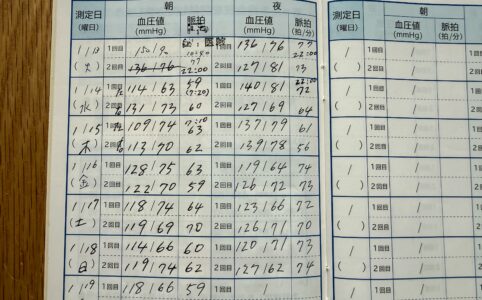 測定日 (曜日) 朝 夜 測定日 (曜日) 朝
血圧値 (mmHg) 脈拍 血圧値 (mmHg) 脈拍 (拍/分) 血圧値 (mmHg)
1/13 1回目 150/ 医院 136/76 77 / 1回目 /
(火) 2回目 136/76 77 22:00 127/81 73 ( ) 2回目 /
1/14 1回目 114/63 59 (7:20) 1回目 140/81 22:00 72 / 1回目 /
(水) 2回目 131/73 60 2回目 127/69 64 ( ) 2回目 /
1/15 1回目 109/74 7:10 63 1回目 137/79 61 / 1回目 /
(木) 2回目 113/70 62 2回目 139/78 56 ( ) 2回目 /
1/16 1回目 128/75 63 1回目 119/64 74 / 1回目 /
(金) 2回目 122/70 59 2回目 126/72 73 ( ) 2回目 /
1/17 1回目 118/74 64 1回目 123/66 72 / 1回目 /
(土) 2回目 119/69 70 2回目 126/71 70 ( ) 2回目 /
1/18 1回目 114/66 60 1回目 120/71 73 / 1回目 /
(日) 2回目 119/74 62 2回目 127/62 74 ( ) 2回目 /
1/19 1回目 118/66 59 1回目 / / 1回目 /